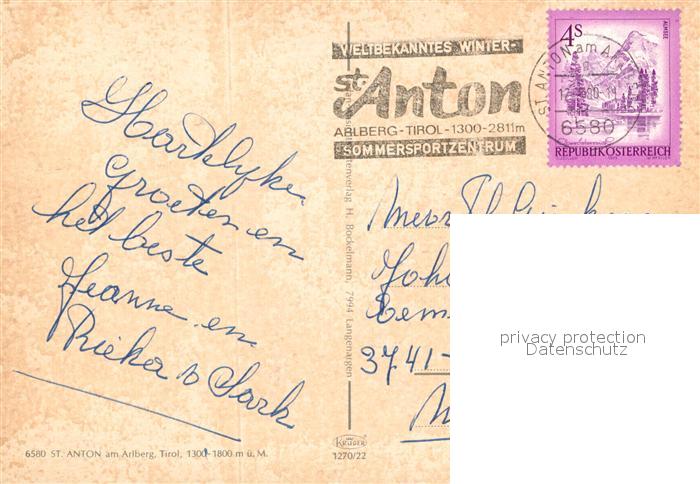 WELTBEKANNTES WINTER-
St. Anton
ARLBERG-TIROL-1300-2811m
SOMMERSPORTZENTRUM
4 S
ALMSEE
ST. ANTON am A
6580
REPUBLIK ÖSTERREICH
Hartelyke
groeten en
het beste
Jeanne en
Rieka v Sark
Mevr
Joh
Bem
3741-
H. Bockelmann, 7994 Langenargen
privacy protection
Datenschutz
KRÜGER
1270/22
6580 ST. ANTON am Arlberg, Tirol, 1300-1800 m ü. M.